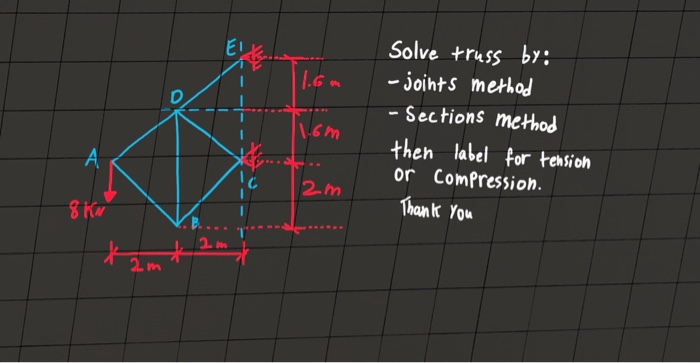 E
Solve truss by:
1.6 m
- joints method
D
- Sections method
1.6m
A
then label for tension
or compression.
C
2m
8KN
Thank you
B
2m
2m